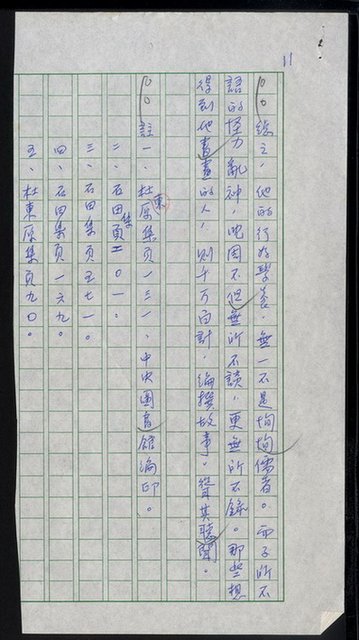 11
總之，他的行為學養，無一不是恂恂儒者。而子所不
語的怪力亂神，沈周不但無所不談，更無所不錄。那些想
得到他畫畫的人，則千方百計，編撰故事，聳其聽聞。
註一、杜東原集頁一三一、中央圖書館編印。
二、石田集頁二〇一。
三、石田集頁五七一。
四、石田集頁一六九。
五、杜東原集頁九〇。